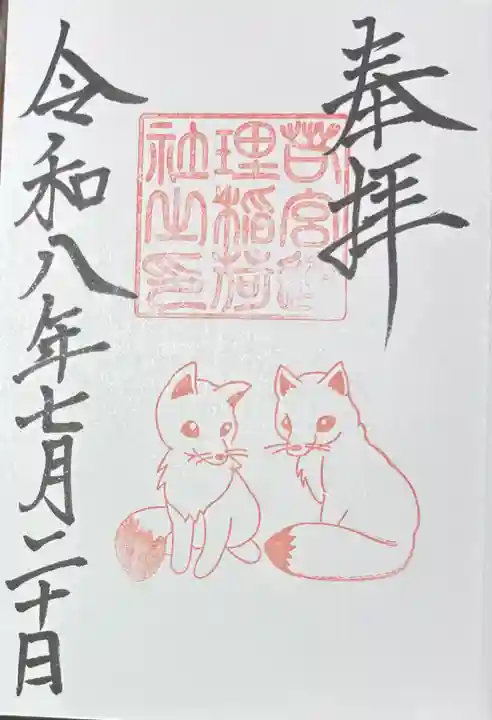 奉拝
宮
理稲荷
社之印
令和八年七月二十日